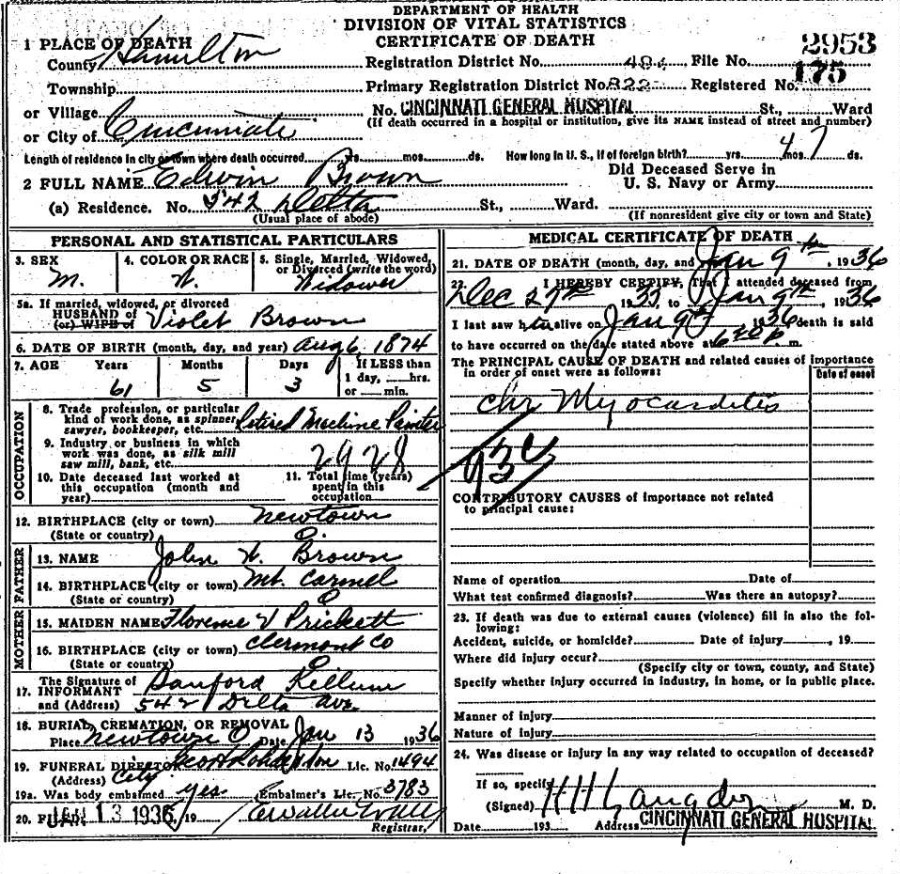 DEPARTMENT OF HEALTH
DIVISION OF VITAL STATISTICS
CERTIFICATE OF DEATH
1 PLACE OF DEATH
County Hamilton Registration District No. 494 File No. 2953
Township Primary Registration District No. 822 Registered No. 175
or Village No. CINCINNATI GENERAL HOSPITAL St., Ward
or City of Cincinnati (If death occurred in a hospital or institution, give its NAME instead of street and number)
Length of residence in city or town where death occurred yrs. mos. ds. How long in U. S., if of foreign birth? yrs. mos. ds. 47
2 FULL NAME Edwin Brown Did Deceased Serve in U. S. Navy or Army
(a) Residence. No. 542 Delta St., Ward.
(Usual place of abode) (If nonresident give city or town and State)
PERSONAL AND STATISTICAL PARTICULARS
3. SEX M. 4. COLOR OR RACE W. 5. Single, Married, Widowed, or Divorced (write the word) Widower
5a. If married, widowed, or divorced
HUSBAND of Violet Brown
(or) WIFE of
6. DATE OF BIRTH (month, day, and year) Aug 6, 1874
7. AGE Years Months Days If LESS than
61 5 3 1 day, hrs.
or min.
OCCUPATION
8. Trade profession, or particular
kind of work done, as spinner, Retired Machine Painter
sawyer, bookkeeper, etc.
9. Industry or business in which
work was done, as silk mill
saw mill, bank, etc. 2928
10. Date deceased last worked at
this occupation (month and
year)
11. Total time (years)
spent in this
occupation
12. BIRTHPLACE (city or town) Newtown
(State or country) O.
FATHER
13. NAME John W. Brown
14. BIRTHPLACE (city or town) Mt. Carmel
(State or country) O
MOTHER
15. MAIDEN NAME Florence V Prickett
16. BIRTHPLACE (city or town) Clermont Co
(State or country) O
The Signature of
17. INFORMANT Sanford Kellum
and (Address) 542 Delta Ave.
18. BURIAL, CREMATION, OR REMOVAL
Place Newtown O Date Jan 13 1936
19. FUNERAL DIRECTOR Lic. No. 1494
(Address) City
19a. Was body embalmed yes Embalmer's Lic. No. 3783
20. JAN 13 1936 19
Registrar,
MEDICAL CERTIFICATE OF DEATH
21. DATE OF DEATH (month, day, and year) Jan 9th, 1936
22. I HEREBY CERTIFY, That I attended deceased from
Dec 27th 1935 to Jan 9th, 1936
I last saw him alive on Jan 9th 1936 death is said
to have occurred on the date stated above at m.
The PRINCIPAL CAUSE OF DEATH and related causes of importance
in order of onset were as follows:
Date of onset
Chr Myocarditis
93c
CONTRIBUTORY CAUSES of importance not related
to principal cause:
Name of operation Date of
What test confirmed diagnosis? Was there an autopsy?
23. If death was due to external causes (violence) fill in also the fol-
lowing:
Accident, suicide, or homicide? Date of injury , 19
Where did injury occur?
(Specify city or town, county, and State)
Specify whether injury occurred in industry, in home, or in public place.
Manner of injury
Nature of injury
24. Was disease or injury in any way related to occupation of deceased?
If so, specify
(Signed) H H Langdon M. D.
Date 193 Address CINCINNATI GENERAL HOSPITAL